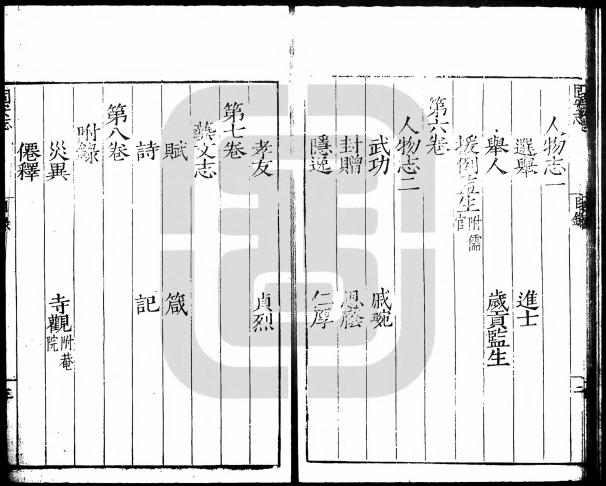 人物志一
選舉 進士
舉人 歲貢監生
援例監生附儒官
第六卷
人物志二
武功 戚畹
封贈 恩蔭
隱逸 仁厚
孝友 貞烈
第七卷
藝文志
賦 箴
詩 記
第八卷
附錄
災異 寺觀附菴院
僊釋